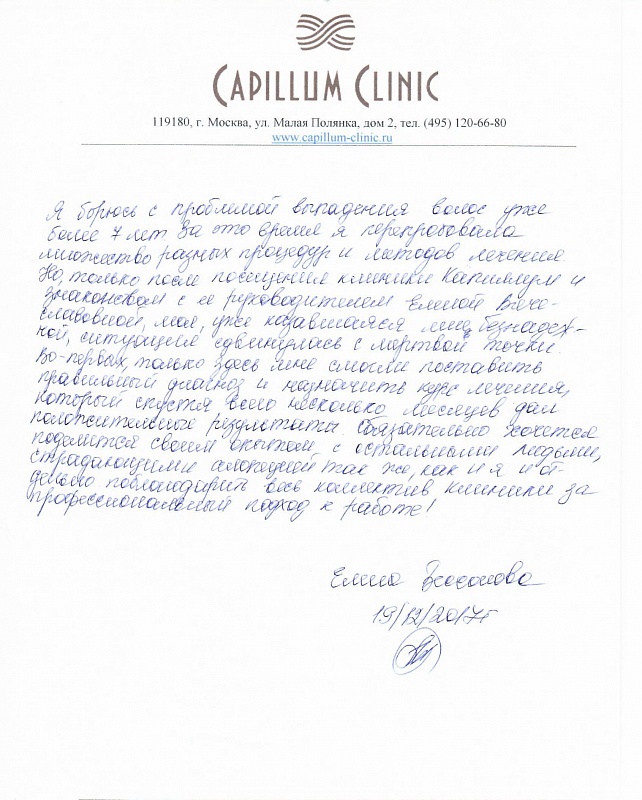 CAPILLUM CLINIC
119180, г. Москва, ул. Малая Полянка, дом 2, тел. (495) 120-66-80
www.capillum-clinic.ru
Я борюсь с проблемой выпадения волос уже
более 7 лет. За это время я перепробовала
множество разных процедур и методов лечения.
Но, только после посещения клиники Капиллум и
знакомством с ее руководителем Еленой Вяче-
славовной, моя, уже казавшаяся мне безнадеж-
ной, ситуация сдвинулась с мертвой точки.
Во-первых, только здесь мне смогли поставить
правильный диагноз и назначить курс лечения,
который спустя всего несколько месяцев дал
положительные результаты. Обязательно хочется
поделится своим опытом с остальными людьми,
страдающими алопецией так же, как и я и от
дельно поблагодарить весь коллектив клиники за
профессиональный подход к работе!
Елена
19/12/2017г